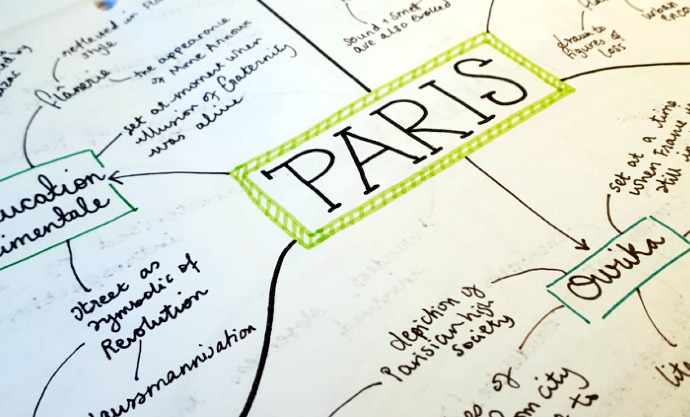 reflected in
style
flânerie
the appearance
of Mme Arnoux
set at moment when
illusion of fraternity
was alive
sound + smell
are also evoked
drawn to
figures of
loss
urban
PARIS
ucation
imentale
set at a time
when France
still
Ourika
street as
symbolic of
Revolution
aussmannisation
depiction of
Parisian high
society
of
city
to